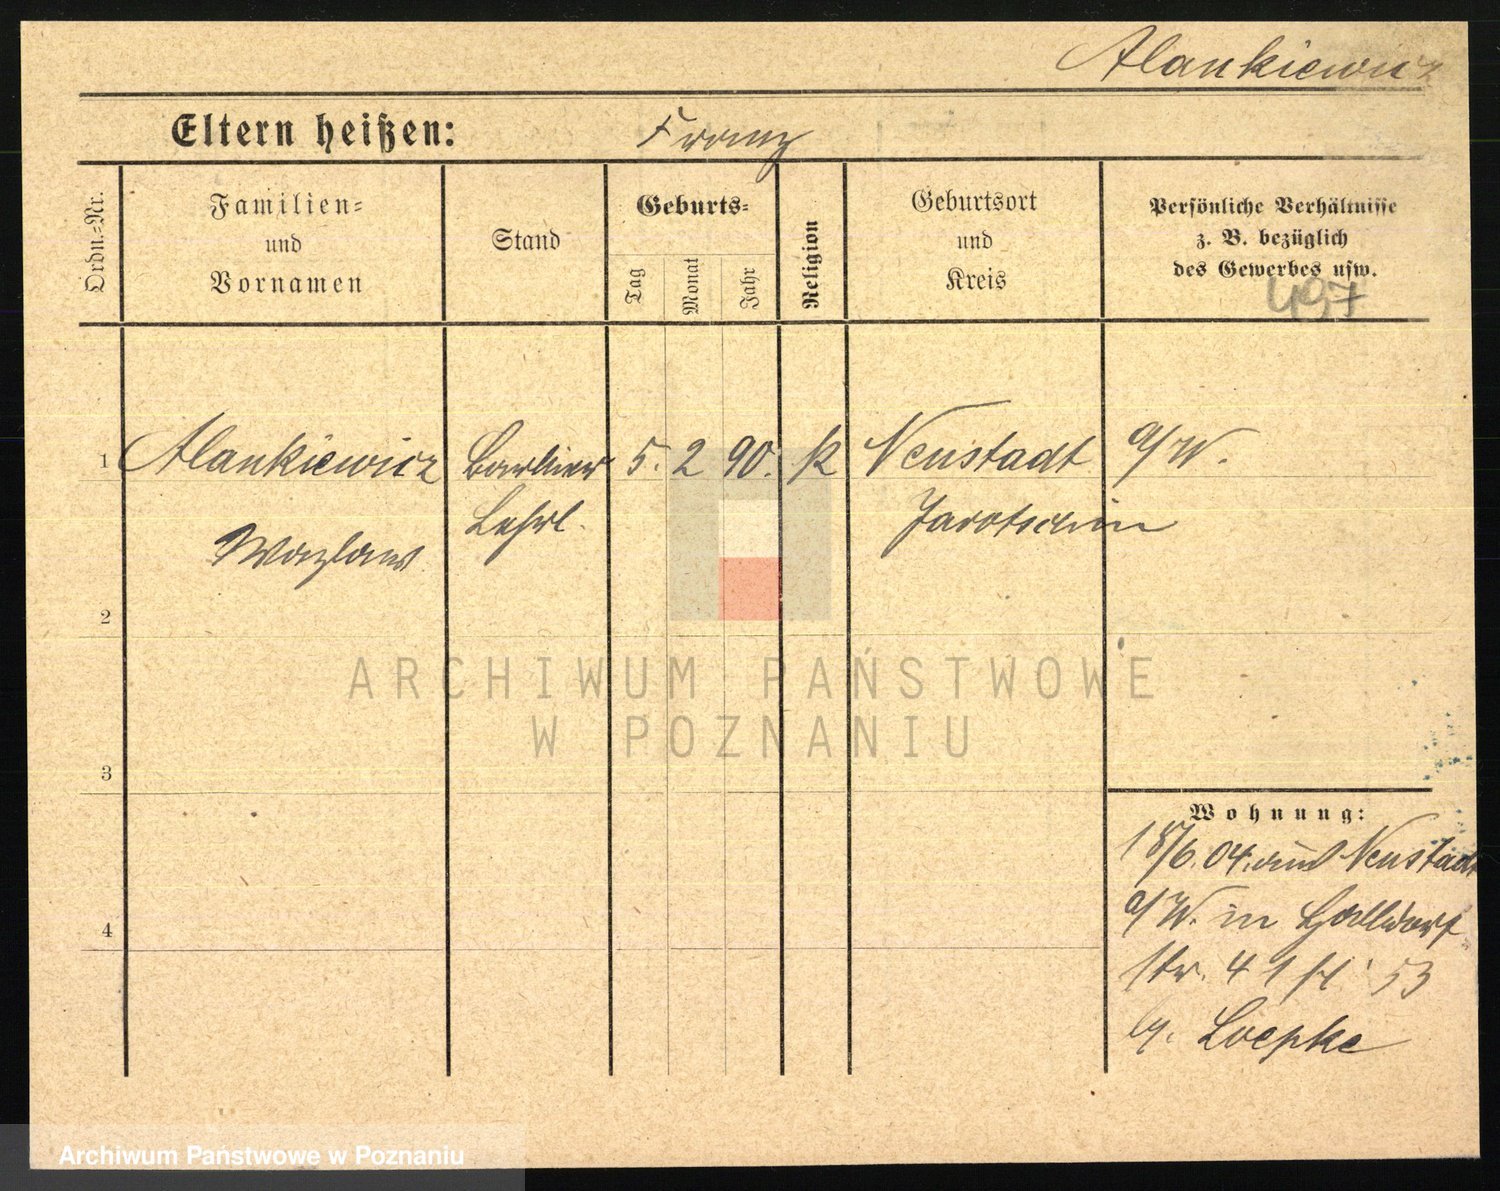 Alankiewicz
Eltern heißen: Franz
Ordn.-Nr.
Familien-
und
Vornamen
Stand
Geburts-
Tag
Monat
Jahr
Religion
Geburtsort
und
Kreis
Persönliche Verhältnisse
z. B. bezüglich
des Gewerbes usw.
497
1 Alankiewicz Barbier 5. 2 90. K Neustadt a/W.
Lehrl. Jarotschin
Wazlaw
2
3
4
ARCHIWUM PAŃSTWOWE
W POZNANIU
Wohnung:
18/6.04. aus Neustadt
a/W. in Halldorf
str. 41
b. Loepke
Archiwum Państwowe w Poznaniu